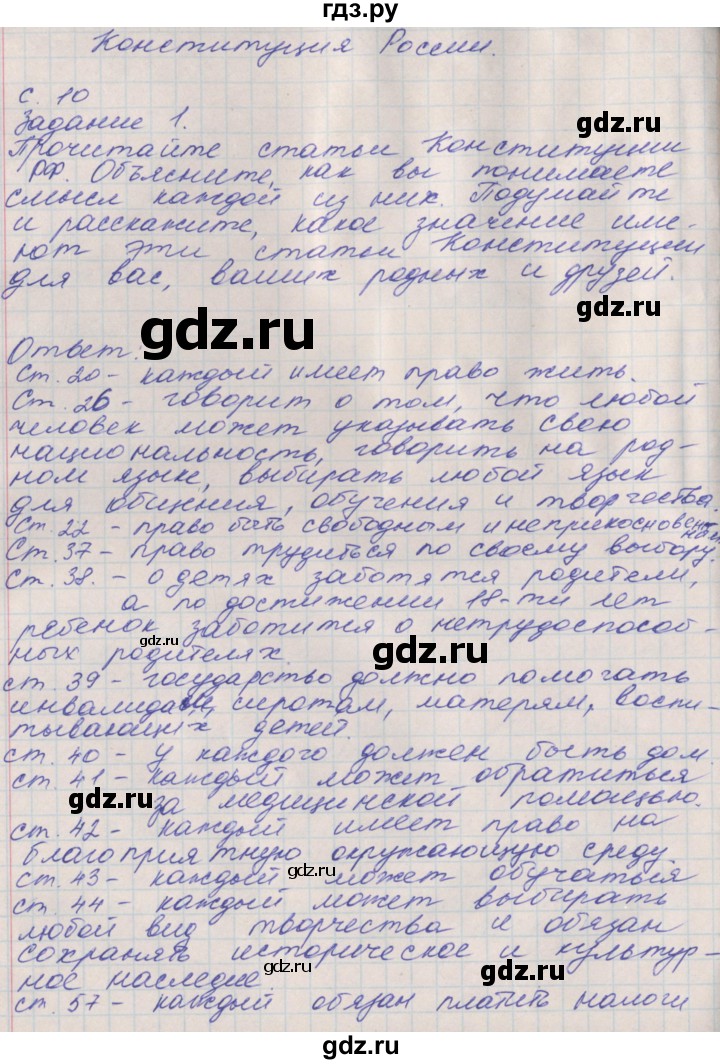 гдз.ру
Конституция России.
с. 10
Задание 1.
Прочитайте статьи Конституции
РФ. Объясните, как вы понимаете
смысл каждой из них. Подумайте
и расскажите, какое значение име-
ют эти статьи Конституции
для вас, ваших родных и друзей.
gdz.ru
Ответ:
Ст. 20 - каждый имеет право жить.
Ст. 26 - говорит о том, что любой
человек может указывать свою
национальность, говорить на род-
ном языке, выбирать любой язык
для общения, обучения и творчества.
Ст. 22 - право быть свободным и неприкосновенным
Ст. 37 - право трудиться по своему выбору.
Ст. 38. - о детях заботятся родители,
а по достижении 18-ти лет
ребенок заботится о нетрудоспособ-
gdz.ru
gdz.ru
ных родителях.
ст. 39 - государство должно помогать
инвалидам, сиротам, матерям, воспи-
тывающих детей.
ст. 40 - У каждого должен быть дом.
ст. 41 - каждый может обратиться
gdz.ru
за медицинской помощью.
ст. 42 - каждый имеет право на
gdz.ru
благоприятную окружающую среду
ст. 43 - каждый может обучаться
ст. 44 - каждый может выбирать
любой вид творчества и обязан
сохранять историческое и культур-
gdz.ru
gdz.ru
ное наследие.
ст. 57 - каждый обязан платить налоги
gdz.ru